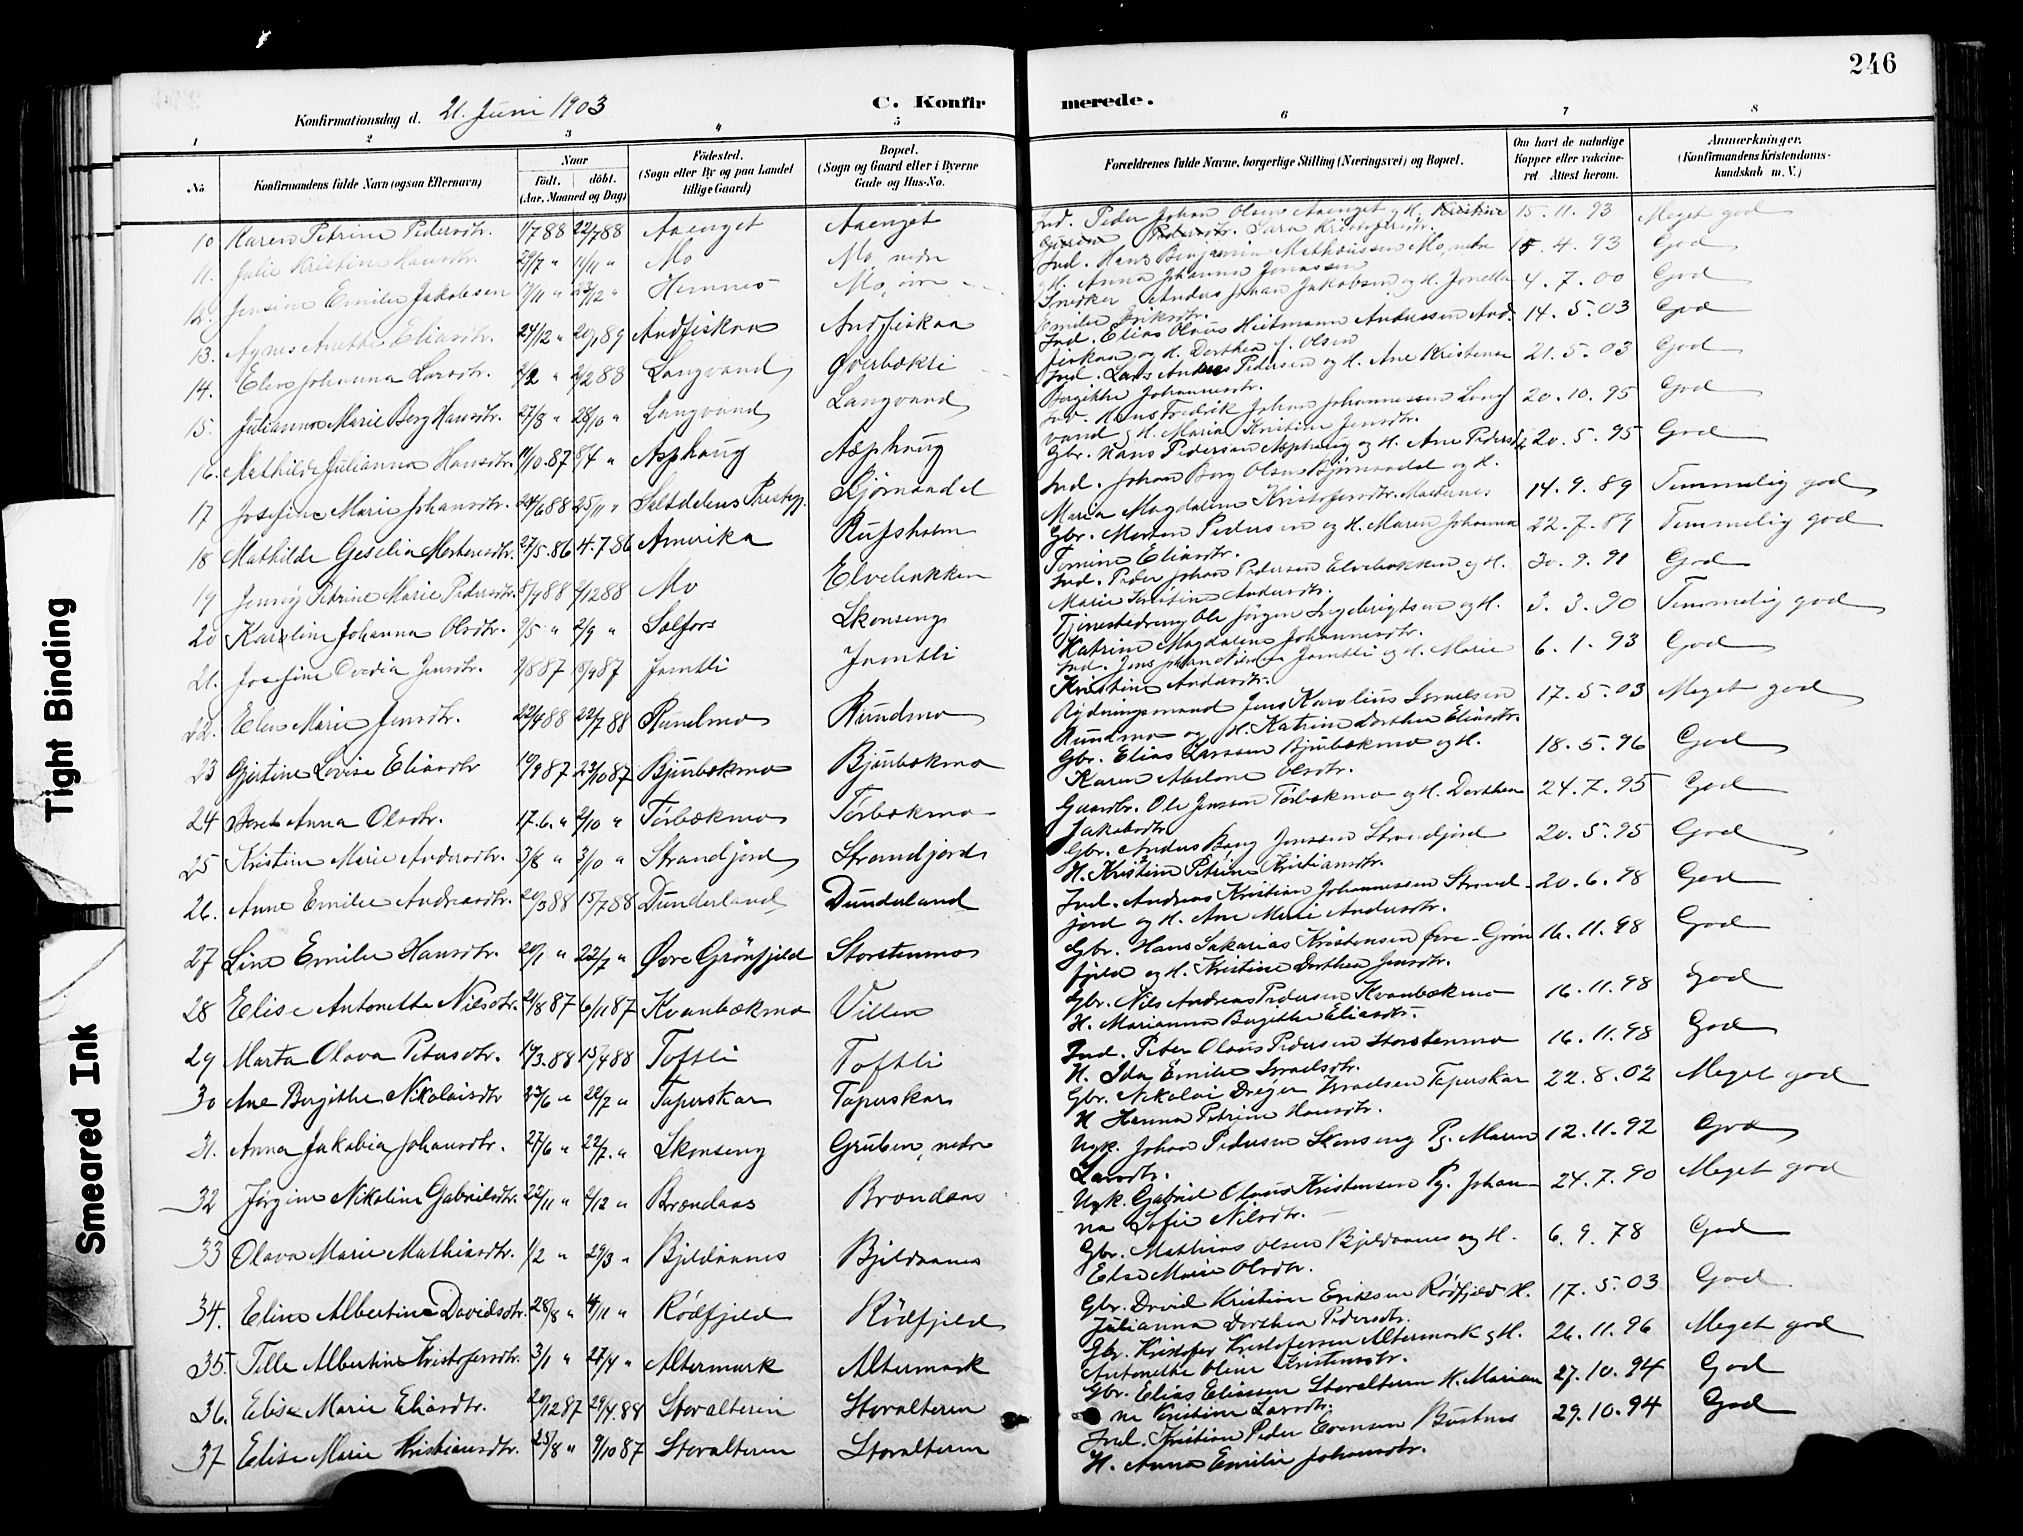 246
Konfirmationsdag d. 21. Juni 1903 C. Konfirmerede.
1 2 3 4 5 6 7 8
No
Konfirmandens fulde Navn (ogsaa Efternavn)
Naar
Född. döbt.
(Aar, Maaned og Dag)
Födested.
(Sogn eller By og paa Landet
tillige Gaard)
Bopæl.
(Sogn og Gaard eller i Byerne
Gade og Hus-No.
Forældrenes fulde Navne, borgerlige Stilling (Næringsvei) og Bopæl.
Om havt de naturlige
Kopper eller vakcine-
ret Attest herom.
Anmærkninger.
(Konfirmandens Kristendoms-
kundskab m. V.)
10 Karen Petrine Pedersdtr. 1/7 88 22/7 88 Aaenget Aaenget Ind. Peder Johan Olsen Aaenget og H. Kristine 15.11.93 Meget god
Pedersdtr. Sara Kristofersdtr.
11. Julie Kristine Hansdtr. 29/7 " 11/11 " Mo Mo, nedre Ind. Hans Benjamin Matheussen Mo, nedre 15.4.93 God
og H. Anna Johanna Jonassen
12. Jensine Emilie Jakobsen 23/12 " Hemnes Mo, övre Snedker Anders Johan Jakobsen og H. Jonetta 4.7.00 God
Emilie Eriksdtr.
13. Agnes Anette Eliasdtr. 24/12 " 20/1 89 Andfiskaa Andfiskaa Ind. Elias Olaus Heitmann Anderssen And- 14.5.03 God
fiskaa og H. Dorthea J. Olsen
14. Elen Johanna Larsdtr. Langvand Överbækli Ind. Lars Anders Pedersen og H. Ane Kristense 21.5.03 God
Bergitte Johannesdtr.
15. Julianna Marie Berg Hansdtr. 27/8 " 28/10 " Langvand Langvand Ind. Hans Fredrik Johan Johannessen Lang- 20.10.95 God
vand og H. Maria Kristine Jensdtr.
16. Mathilde Julianna Hansdtr. Asphaug Asphaug Gbr. Hans Pedersen Asphaug og H. Ane Pedersdtr. 20.5.95 God
17 Josefine Marie Johansdtr. 24/6 88 25/11 " Saltdalens Prestegj. Bjørnaadal Ind. Johan Berg Olsen Bjørnaadal og H. 14.9.89 Temmelig god
Maria Magdalena Kristofersdtr.
18 Mathilde Geselia Mortensdtr. 27/5.86 4.7.86 Amerika Rufsholm Gbr. Morten Pedersen og H. Maren Johanna 22.7.89 Temmelig god
Tomine Eliasdtr.
19 Jenny Petrine Marie Pedersdtr. Mo Elvebakken Ind. Peder Johan Pedersen Elvebakken og H. 30.9.91 God
Marie Kristine Andersdtr.
20 Karoline Johanna Olsdtr. 2/5 " 2/9 " Selfors Skonseng Tjenestedreng Ole Jørgen Ingebrigtsen og H. 3.3.90 Temmelig god
Katrine Magdalena Johannesdtr.
21. Josefine Jensdtr. Jamtli Jamtli Ind. Jens Johan Nilsen Jamtli og H. Marie 6.1.93 God
Kristine Andersdtr.
22. Elen Marie Jensdtr. 22/4 88 22/7 88 Rundmo Rundmo Rydningsmand Jens Karolius Israelsen 17.5.03 Meget god
Rundmo og H. Katrine Dorthea Eliasdtr.
23 Gjertine Lovise Eliasdtr 19/9 87 23/10 87 Bjurbækmo Bjurbækmo Gbr. Elias Larssen Bjurbækmo og H. 18.5.96 God
Karen Abelone Olsdtr.
24 Beret Anna Olsdtr. 17.6. " 2/10 " Tørbækmo Tørbækmo Gaardbr. Ole Jensen Tørbækmo og H. Dorthea 24.7.95 God
Jakobsdtr.
25 Kristine Marie Andersdtr. 3/8 " 3/10 " Strandjord Strandjord Gbr. Anders Bang Jenssen Strandjord 20.5.95 God
H. Kristine Petrine Kristiansdtr.
26. Anne Emilie Andreasdtr. 20/3 88 15/7 88 Dunderland Dunderland Ind. Andreas Kristian Johannessen Strand- 20.6.98 God
jord og H. Ane Marie Andersdtr.
27 Line Emilie Hansdtr. 20/1 " 22/7 " Øvre Grönfjeld Storstenmo Gbr. Hans Sakarias Kristensen Øvre-Grön- 16.11.98 God
fjeld og H. Kristine Dorthea Jensdtr.
28 Elise Antonette Nilsdtr. 21/8 87 6/11 87 Kvanbækmo Villen Gbr. Nils Andreas Pedersen Kvanbækmo 16.11.98 God
H. Marianna Bergitte Eliasdtr.
29 Marta Olava Petersdtr. 14/3.88 15/4 88 Toftli Toftli Ind. Peter Olaus Pedersen Storstenmo 16.11.98 God
H. Ida Emilie Israelsdtr.
30 Ane Bergitte Nikolaisdtr 23/6 " 22/7 " Taperskar Taperskar Gbr. Nikolai Dreyer Israelsen Taperskar 22.8.02 Meget god
H Hanna Petrine Hansdtr.
31. Anna Jakobia Johansdtr. 27/6 " 22/7. " Skonseng Gruben, nedre Ugk. Johan Pedersen Skonseng Pg. Maren 12.11.92 God
Larsdtr.
32 Jørgine Nikoline Gabrielsdtr. 22/11 " 2/12 " Brændaas Brændaas Ugk. Gabriel Olaus Kristensen Pg. Johan- 24.7.90 Meget god
na Sofie Nilsdtr.
33 Olava Marie Mathiasdtr. 1/2 " 29/3 " Bjeldaanes Bjeldaanes Gbr. Mathias Olsen Bjeldaanes og H. 6.9.78 God
Else Marie Olsdtr.
34. Eline Albertine Davidsdtr. 28/8 " 4/11 " Rödfjeld Rödfjeld Gbr. David Kristian Eriksen Rödfjeld H. 17.5.03 God
Julianna Dorthea Pedersdtr.
35. Tille Albertine Kristofersdtr. 3/1 " 27/4 " Altermark Altermark Gbr. Kristofer Kristofersen Altermark og H. 26.11.96 Meget god
Antonette Oline Kristensdtr.
36. Elise Marie Eliasdtr. 20/12 87 29/4.88 Storalteren Storalteren Gbr. Elias Eliassen Storalteren H. Marian- 27.10.94 God
ne Kristine Larsdtr.
37 Elise Marie Kristiansdtr. 25/8 " 9/10 87 Storalteren Storalteren Ind. Kristian Peder Evensen Bustnes 29.10.94 God
H. Anna Emilie Johansdtr.
Tight Binding
Smeared Ink